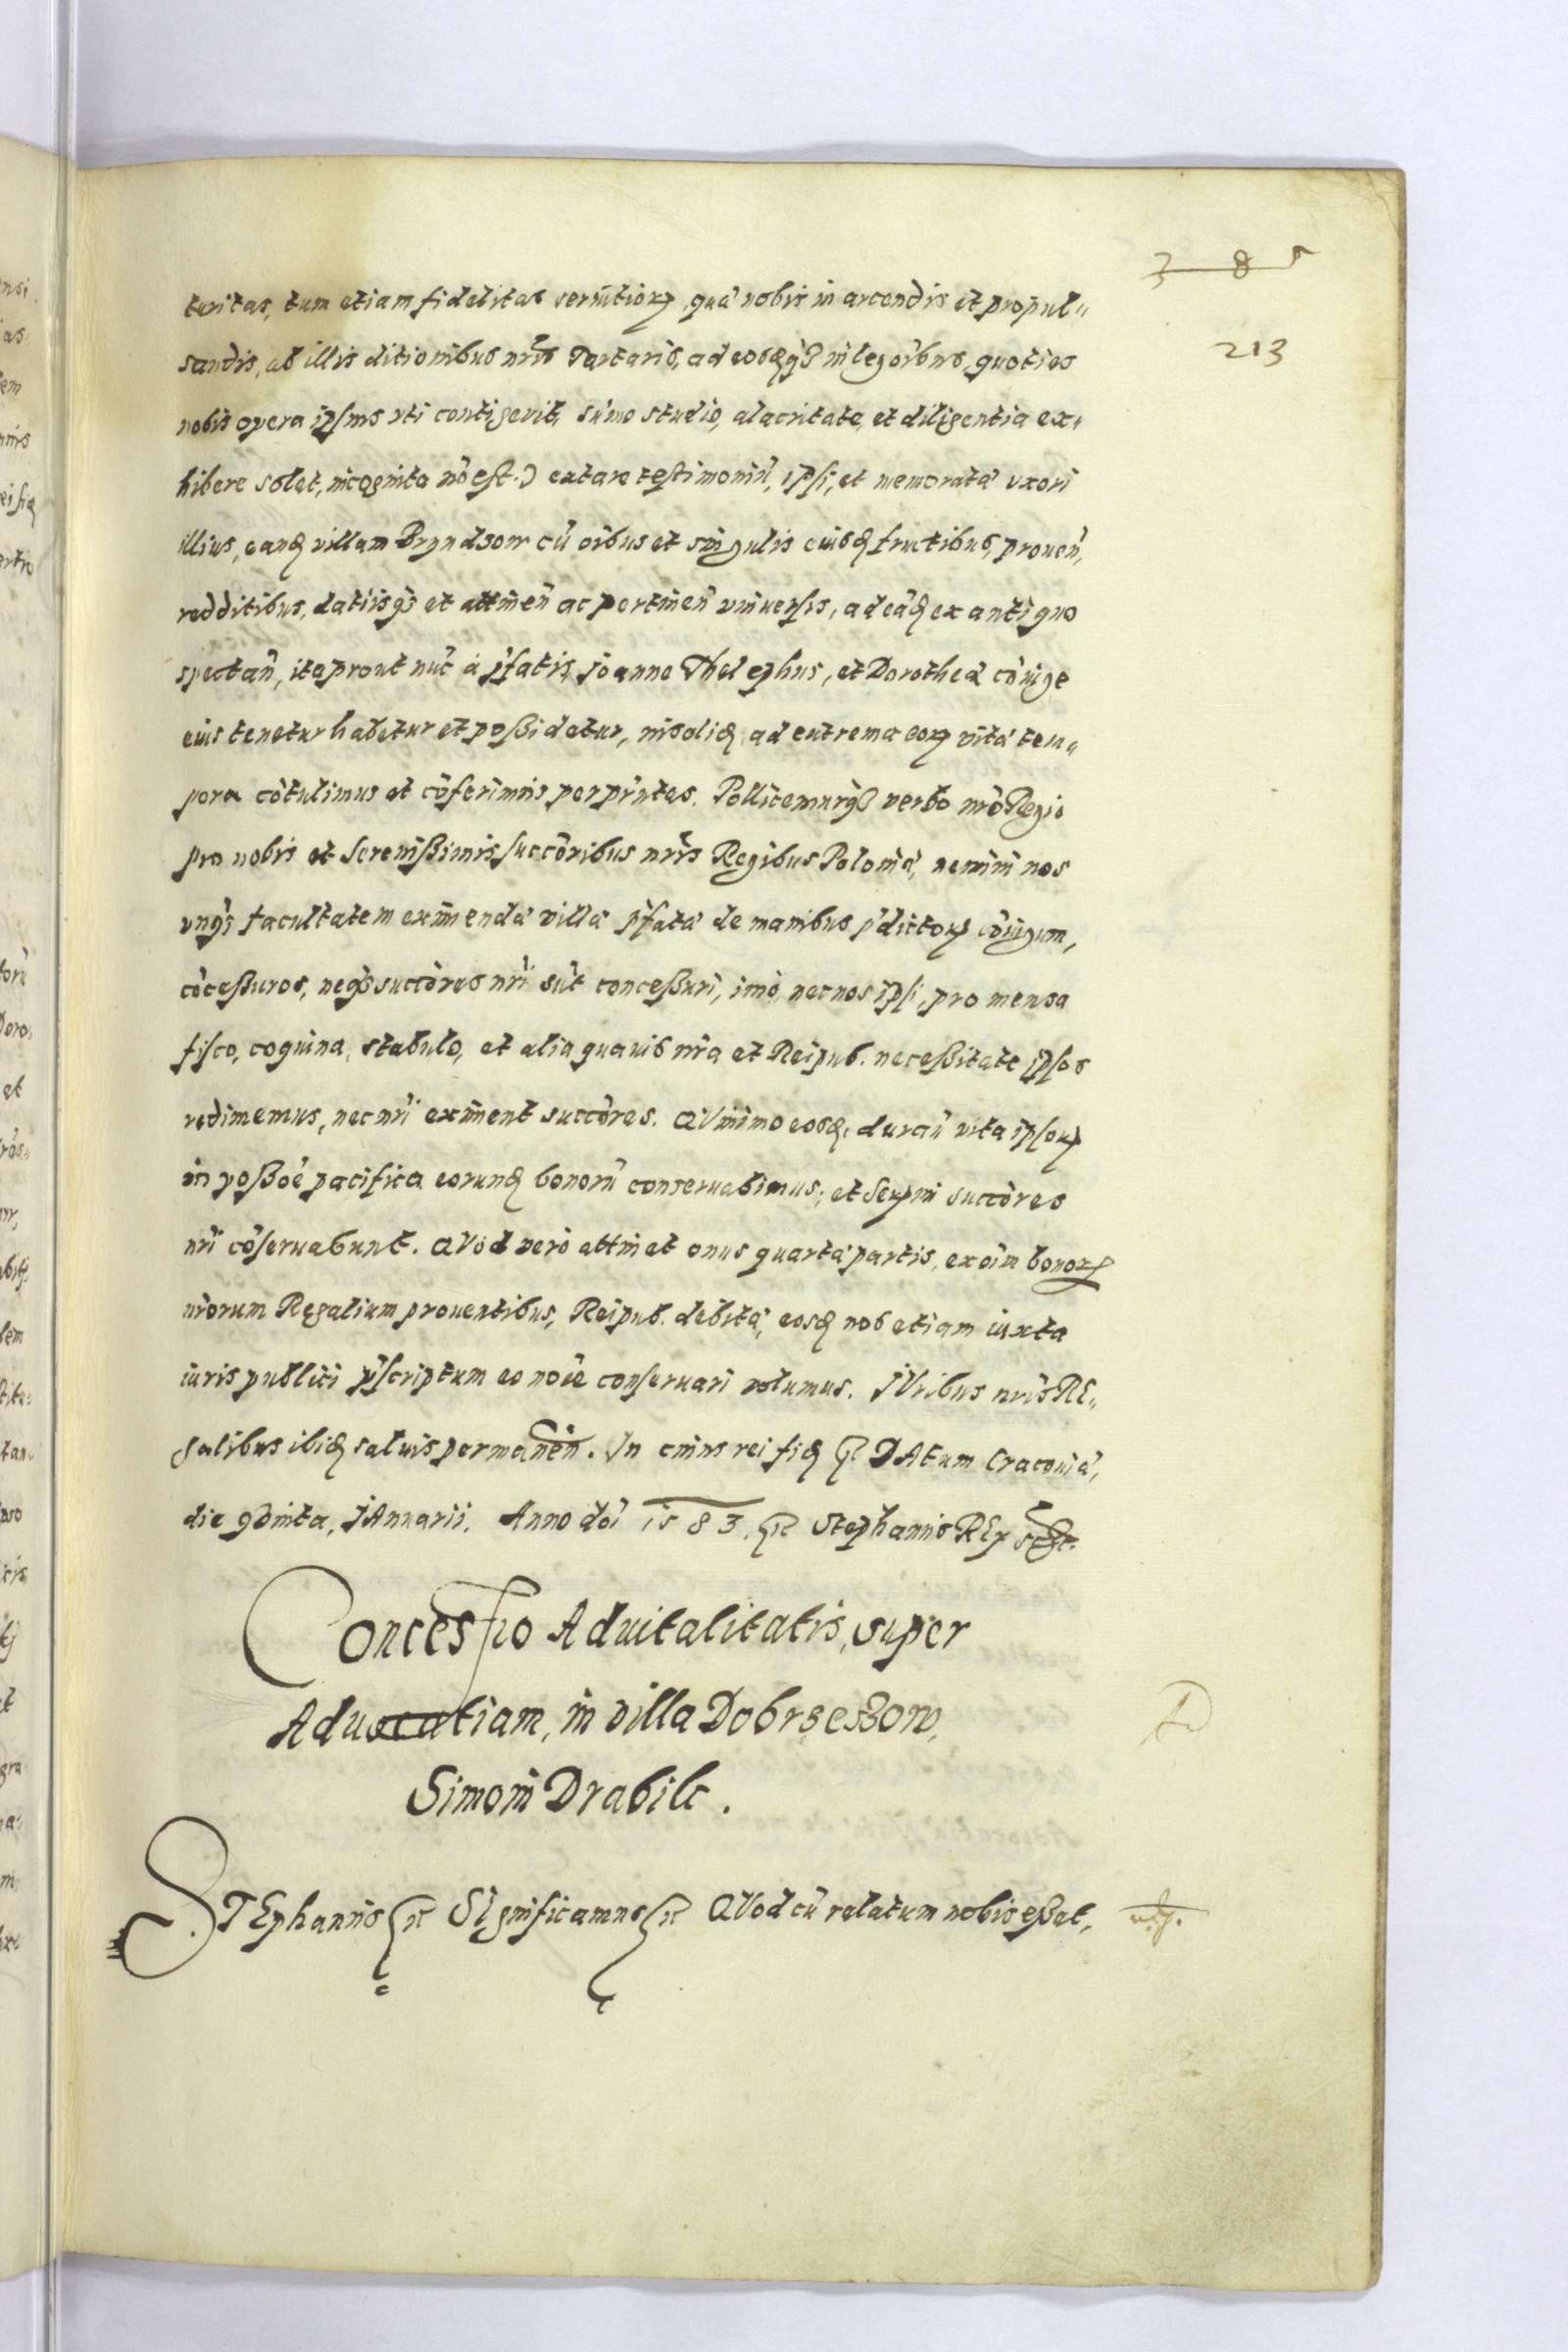 3 8 5
213
teritas, tum etiam fidelitas seruitiorꝫ, quã nobis in arcendis et propul-
sandis, ab illis ditionibus nr̃is Tartaris, ad eosq́ȝ in legoĩbus, quoties
nobis opera ipsius vti contigerit, sũmo studio, alacritate, et diligentia ex-
hibere solet, incognita nõ est.) extare testimoniũ, ipsi, et memoratæ vxori
illius, eanđ villam Bryndzow cũ oĩbus et singulis eiusđ fructibus, prouen̄,
redditibus, datiisq́ȝ et attinen̄ ac pertinen̄ vniuersis, ad eãđ ex antiquo
spectan̄, ita prout nũc à p̃fatis Joanne Thelephus, et Dorothea cõiuge
eius tenetur habetur et poßidetur, ad extrema eorꝫ vitæ tem-
pora cõtulimus et cõferimus per p̃ntes. Pollicemurq́ȝ verbo nr̃o Regio
pro nobis et Serenißimis succõribus nr̃is Regibus Poloniæ, nemini nos
vnq̃ȝ facultatem eximendæ villæ p̃fatæ de manibus p̃dictorꝫ cõiugum,
cõceßuros, neq́ȝ succõres nr̃i sũt conceßuri, imò, nec nos ipsi, pro mensa
fisco, coquina, stabulo, et alia quauis nr̃a et Reipub. neceßitate ipsos
redimemus, nec nr̃i eximent succõres. QVinimo eosđ, durañ vita ipsorꝫ
in poßoẽ pacifica eorunđ bonorũ conseruabimus, et Serꝫmi succõres
nr̃i cõseruabunt. QVod verò attinet onus quartæ partis, ex oĩm bonorꝫ
nr̃orum Regalium prouentibus, Reipub. debitæ, eosđ nos etiam iuxta
iuris publici p̃scriptum eo noĩe conseruari volumus. JVribus nr̃is RE-
galibus ibiđ saluis permanen̄. In cuius rei fiđ &c DAtum Cracouiæ,
die qVinta, JAnuarii. Anno dõi 1583. &c Stephanus REx sst.
Concessio Aduitalitatis, super
Aduocatiam, in villa Dobrzeszow,
Simoni Drabik.
STEphanus &c SIgnificamus &c QVod cũ relatum nobis eßet,